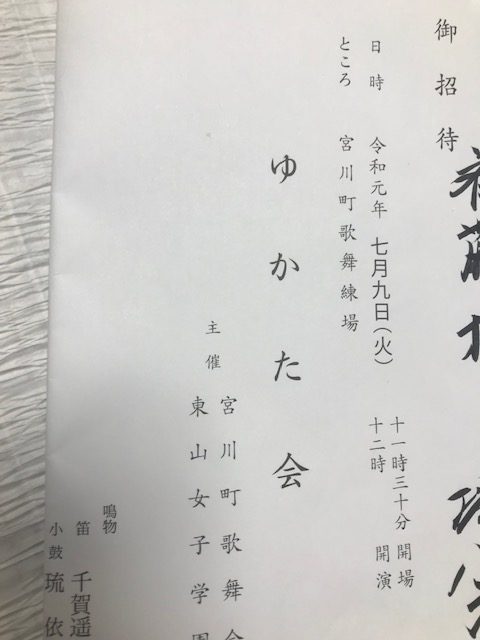 御招待
日時 令和元年 七月九日(火) 十一時三十分 開場
十二時 開演
ところ 宮川町歌舞練場
ゆかた会
主催 宮川町歌舞会
東山女子学園
鳴物
笛 千賀遥
小鼓 琉依